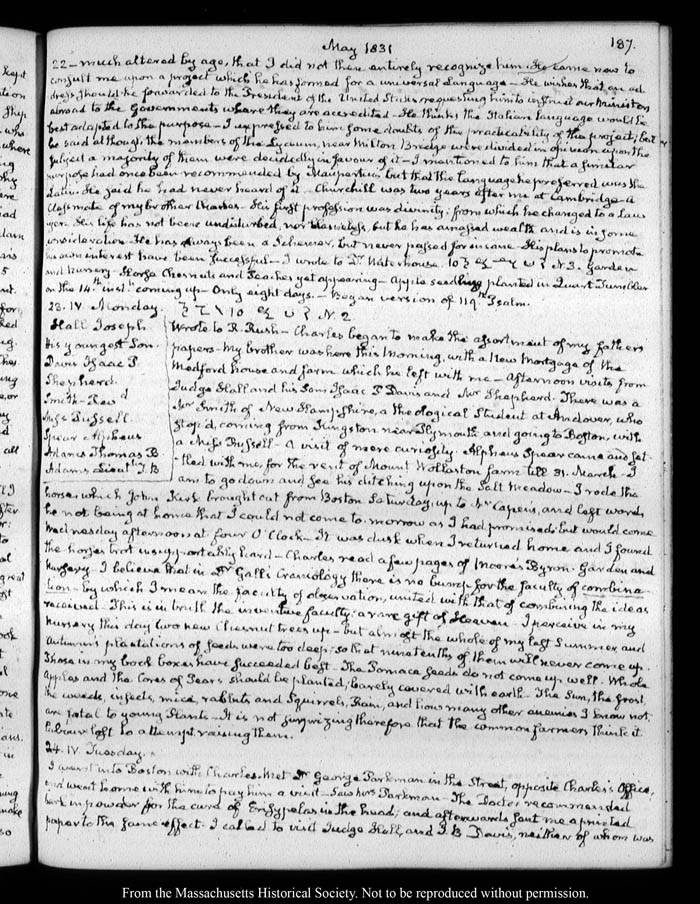 May 1831
187.
22 – much altered by age, that I did not then entirely recognize him. He came now to
consult me upon a project which he has formed for a universal Language – He wishes that an ad
dress should be forwarded to the President of the United States requesting him to instruct our Ministers
abroad to the Governments where they are accredited – He thinks the Italian language would be
best adapted to the purpose – I expressed to him some doubts of the practicability of the project; but
he said although the members of the Lyceum, near Milton Bridge were divided in opinion upon the
subject a majority of them were decidedly in favour of it – I mentioned to him that a similar
purpose had once been recommended by Maupertuis but that the language he preferred was the
Latin. He said he had never heard of it – Churchill was two years after me at Cambridge – a
Classmate of my brother Charles – His first profession was divinity; from which he changed to a Law
yer. His life has not been undisturbed, nor blameless, but he has amassed wealth and is in some
consideration – He has always been a Schemer, but never passed for insane – His plans to promote
his own interest have been successful – I wrote to Dr. Waterhouse. N. 3. Garden
and Nursery – Horse Chesnuts and Peaches yet appearing – Apple seedling planted in Quart Tumbler
on the 14th. instt. coming up – Only eight days – Began version of 119th. Psalm.
23. IV. Monday. N. 2
Hall Joseph
His youngest Son.
Davis Isaac P.
Shepherd.
Smith – Revd
Miss Russell
Spear Alpheus
Adams Thomas B
Adams Lieutt. T. B
Wrote to R. Rush – Charles began to make the assortment of my father's
papers – My brother was here this Morning, with a New Mortgage of the
Medford house and farm which he left with me – Afternoon visits from
Judge Hall and his Son, Isaac P. Davis and Mr. Shepherd. There was a
Mr. Smith of New Hampshire, a theological Student at Andover, who
stop'd, coming from Kingston near Plymouth and going to Boston, with
a Miss Russell – A visit of mere curiosity. Alpheus Spear came and set-
tled with me, for the rent of Mount Wollaston farm till 31. March – I
am to go down and see his ditching upon the Salt Meadow – I rode the
horse which John Kirk brought out from Boston Saturday, up to Mr. Capen's, and left word,
he not being at home that I could not come to-morrow as I had promised but would come
Wednesday afternoon at four O'Clock – It was dusk when I returned home and I found
the horse's trot insupportably hard – Charles read a few pages of Moore's Byron. Garden and
Nursery – I believe that in Dr. Gall's Craniology there is no bump for the faculty of combina-
tion – by which I mean the faculty of observation, united with that of combining the ideas
received. This is in truth the inventive faculty; a rare gift of Heaven – I perceive in my
Nursery this day two new Chesnut trees up – but almost the whole of my last Summer and
Autumn's plantations of seeds were too deep; so that nine tenths of them will never come up.
Those in my book boxes have succeeded best – The Pomace seeds do not come up well. Whole
Apples and the Cores of Pears should be planted; barely covered with earth. The Sun, the frost,
the weeds, insects, mice, rabbits and Squirrels, Rain, and how many other enemies I know not,
are fatal to young Plants – It is not surprizing therefore that the common farmers think it
labour lost to attempt raising them.
24. IV. Tuesday.
I went into Boston with Charles. Met Dr. George Parkman in the Street, opposite Charles's Office,
and went home with him to pay him a visit – Saw Mrs. Parkman – The Doctor recommended
bark in powder for the cure of Erysypelas in the head; and afterwards sent me a printed
paper to the same effect. I called to visit Judge Hall, and I. P. Davis, neither of whom was
From the Massachusetts Historical Society. Not to be reproduced without permission.